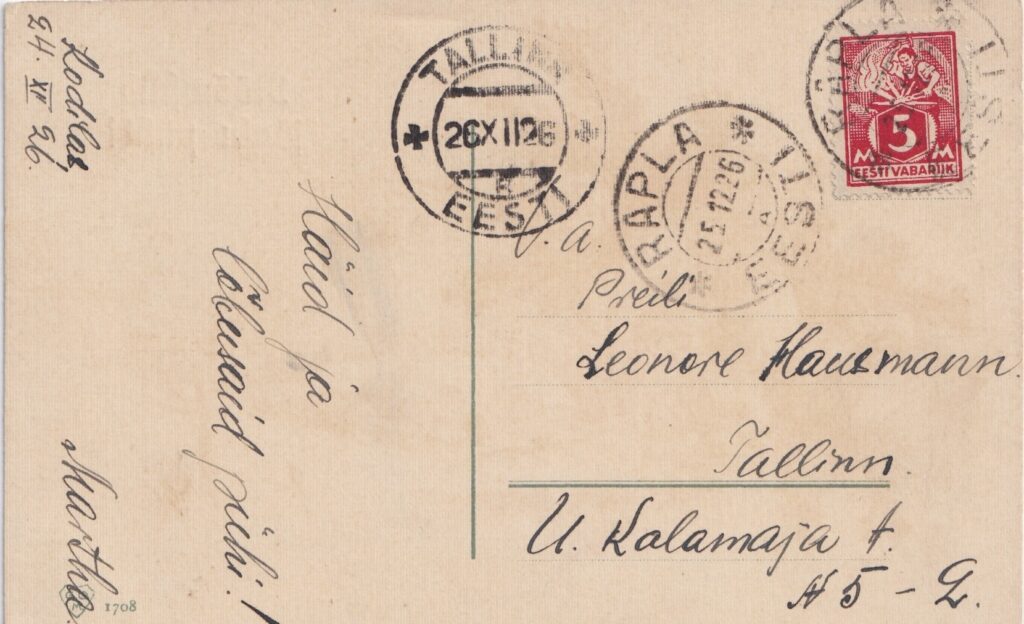 Kodilas,
24. XII 26.
Häid ja
lõbusaid pühi!
Martha.
1708
TALLINN
26XII26
EESTI
RAPLA
25.12.26
EESTI
RAPLA
EESTI
5
M M
EESTI VABARIIK
V. a.
Preili
Leonore Hausmann.
Tallinn.
U. Kalamaja t.
N 5 - 2.